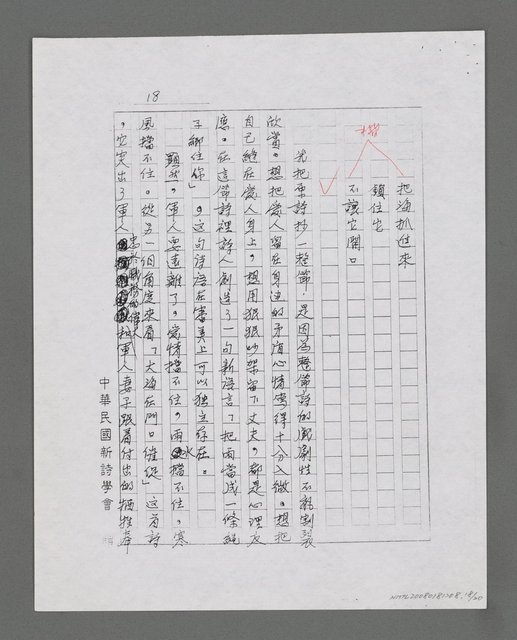 18
楷
把海抓住來
鎖住它
不讓它開口
先把原詩抄一整節，是因為整節詩的戲劇性不能割裂
欣賞。想把愛人留在身邊的矛盾心情寫得十分入微。想把
自己縫在愛人身上，想用狠狠吵架留下丈夫，都是心理反
應。在這節詩裡詩人創造了一句新語言「把雨當成一條繩
子綁住你」。這句詩語在審美上可以独立存在。
顯然，軍人要遠離了。愛情擋不住，雨水擋不住，寒
風擋不住。從另一個角度來看「大海在門口催促」這首詩
，它突出了軍人忠於職務的偉大和軍人妻子跟著付出的犧牲奉
中華民國新詩學會
NMTL20080181208.18/20